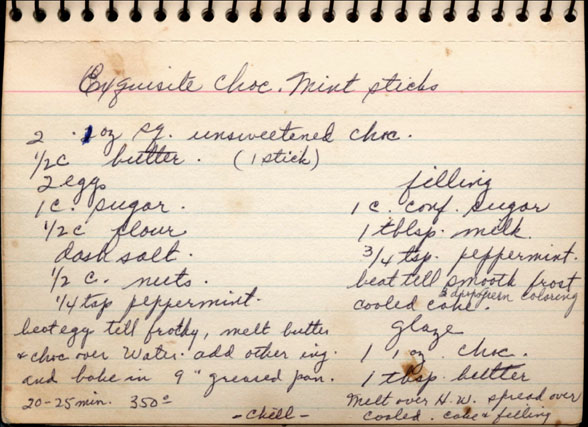 Exquisite Choc. Mint sticks
2 1 oz sq. unsweetened choc.
1/2 c butter. (1 stick)
2 eggs
1 c. sugar.
1/2 c flour
dash salt.
1/2 c. nuts.
1/4 tsp peppermint.
beat egg till frothy, melt butter
& choc over water. add other ing.
and bake in 9" greased pan.
20-25 min. 350°
- Chill -
filling
1 c. conf. sugar
1 tblsp. milk.
3/4 tsp. peppermint.
beat till smooth frost
cooled cake. 2 drps green coloring
glaze
1 1 oz. choc.
1 tbsp. butter
Melt over H.W. spread over
cooled. cake & filling